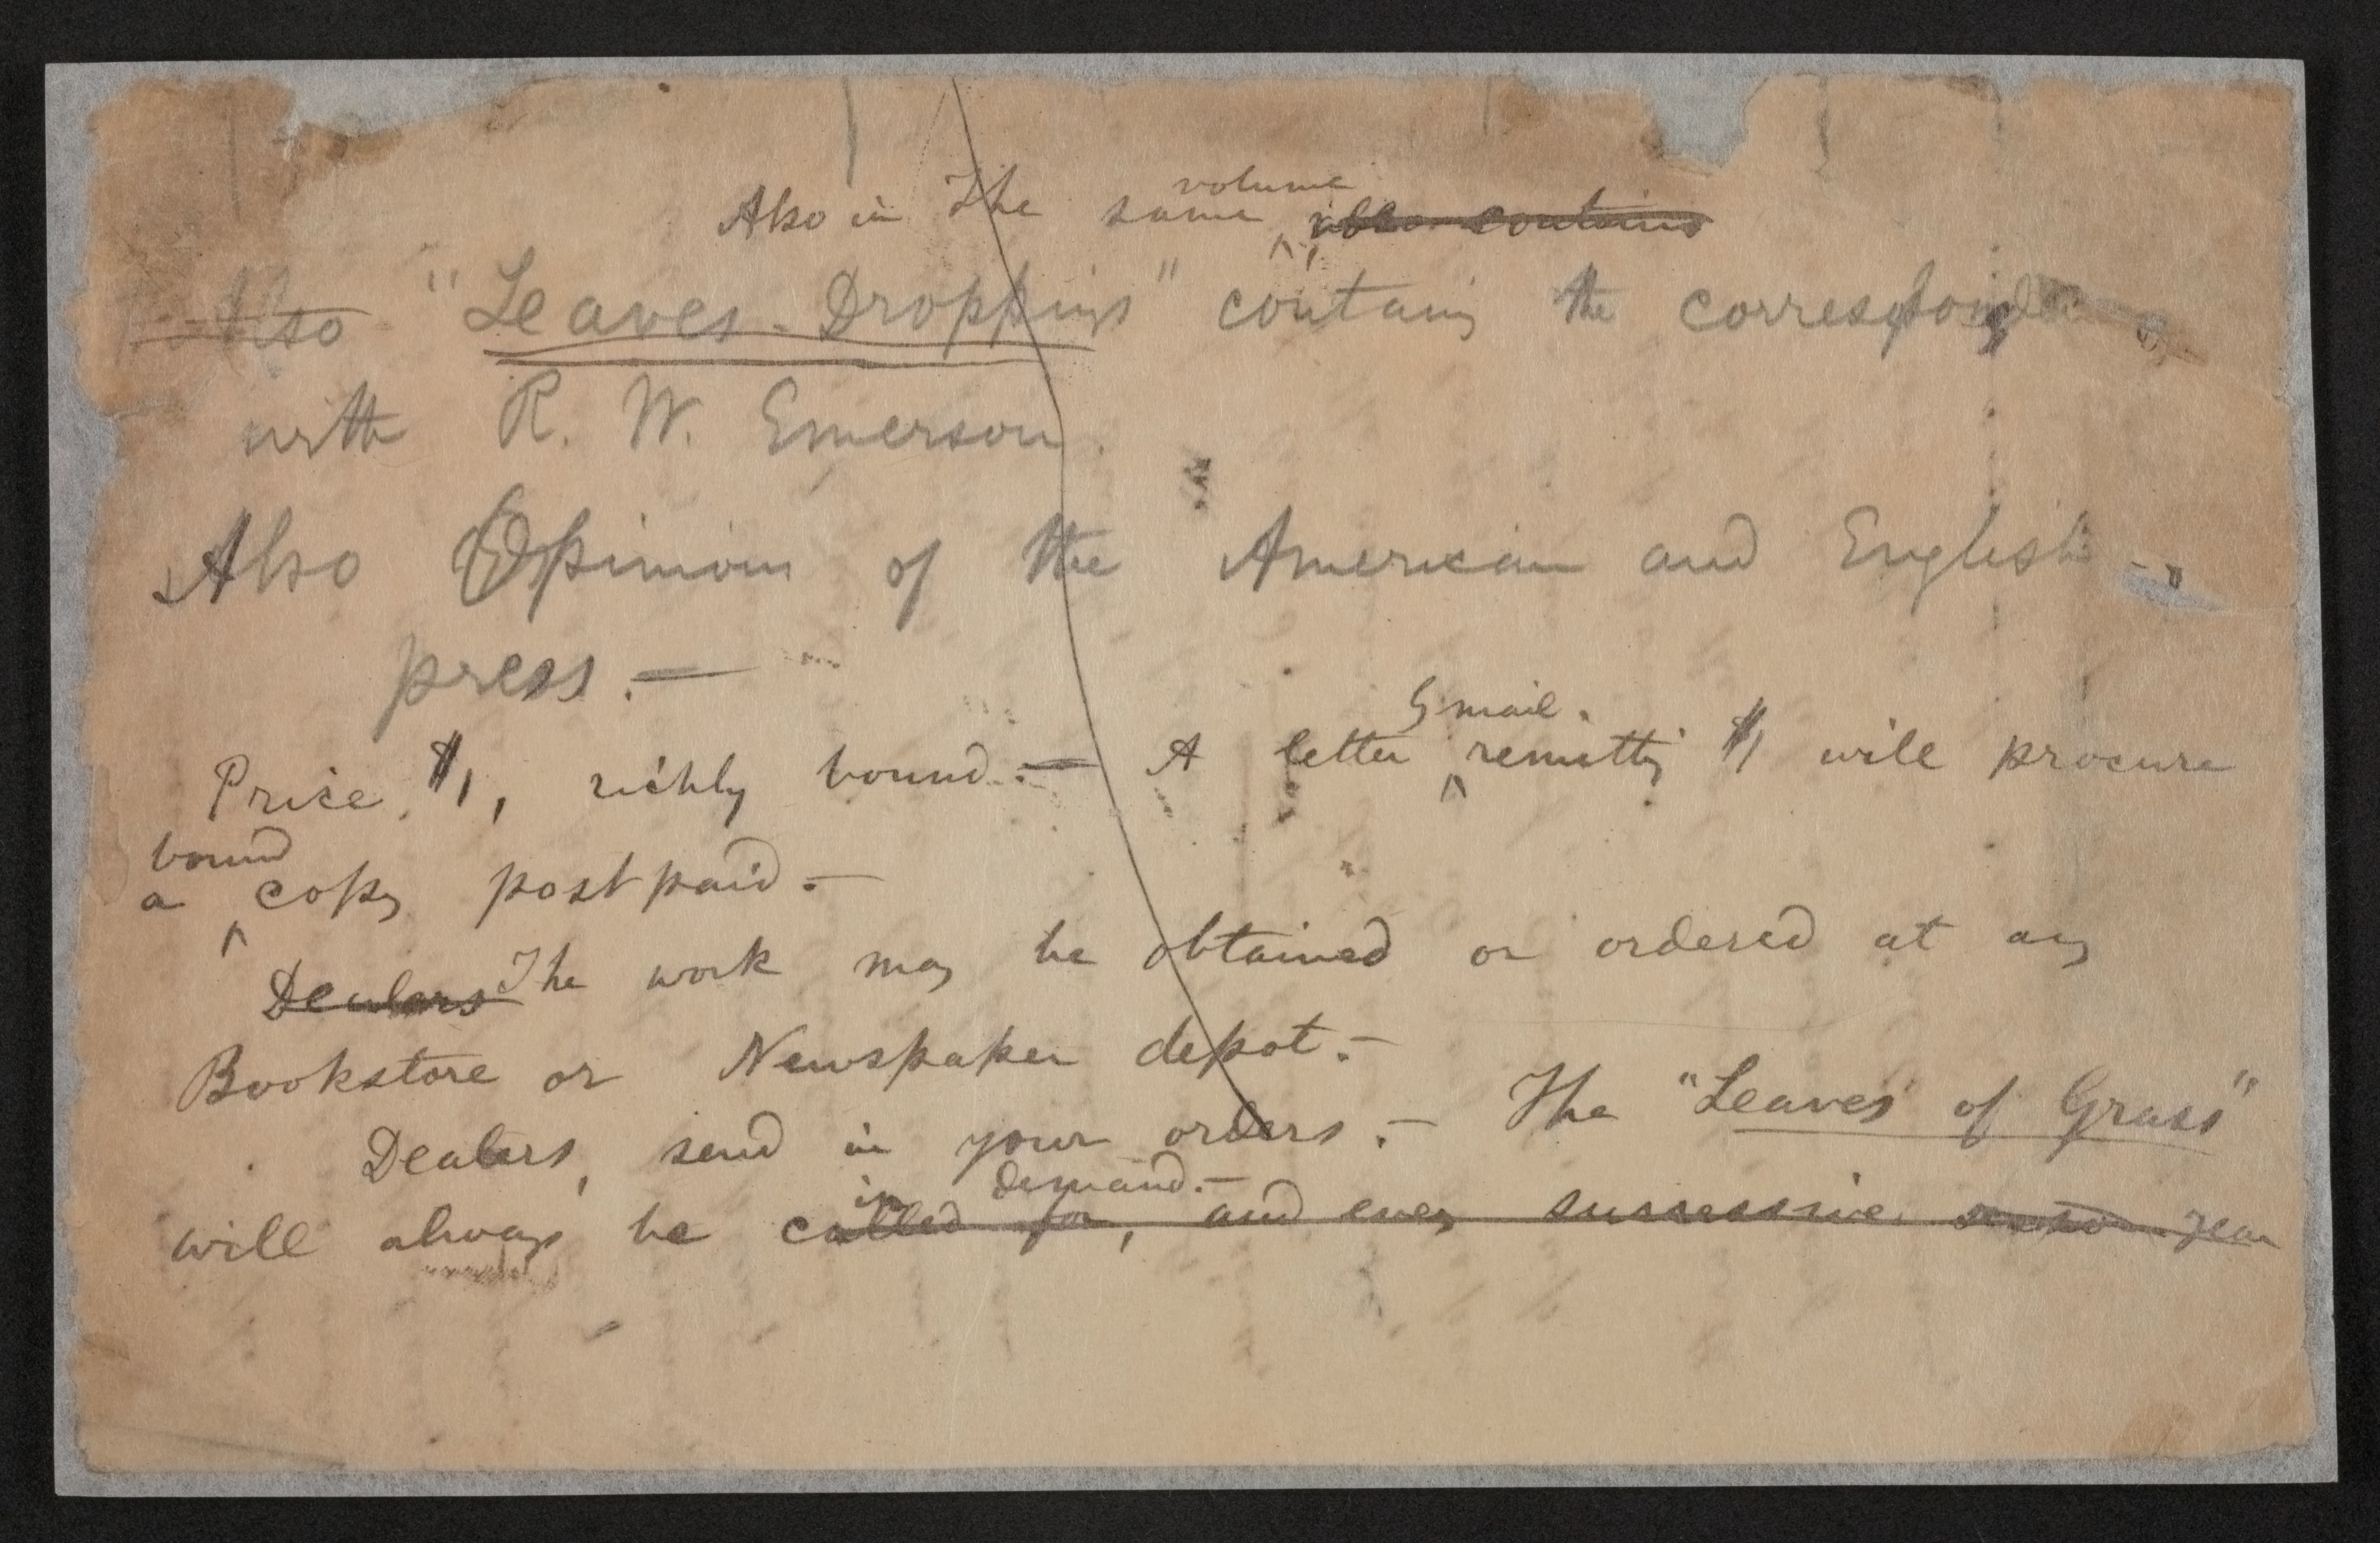 Also in The same volume also contains
Also "Leaves-Droppings" containing the correspondence
with R. W. Emerson.
Also Opinions of the American and English
press.—
by mail.
Price, $1, richly bound.— A letter remitting $1 will procure
bound
a copy postpaid.—
Dealers The work may be obtained or ordered at any
Bookstore or Newspaper depot.—
Dealers, send in your orders.— The "Leaves of Grass"
in demand.—
will always be called for, and every successive year